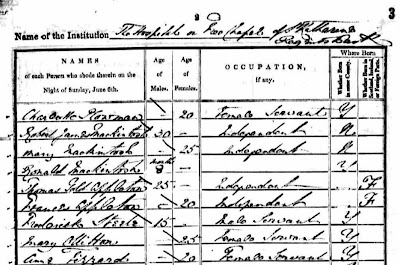 3
Name of the Institution The Hospital or Free Chapel of St Katharine
Regents Park
NAMES
of each Person who abode therein on the Night of Sunday, June 6th.
Age of Males.
Age of Females.
OCCUPATION,
if any.
Where Born
Whether Born in same County.
Whether Born in Scotland, Ireland, or Foreign Parts.
Charlotte Plowman — 20 Female Servant Y
Robert James Mackintosh 30 — Independent N
Mary Mackintosh — 25 Independent N
Ronald Mackintosh months 8 — Y
Thomas Gold Appleton 25 — Independent F
Appleton — 20 Independent F
Frederick 15 — Male Servant Y
Mary — 25 Female Servant Y
Ann — 20 Female Servant Y